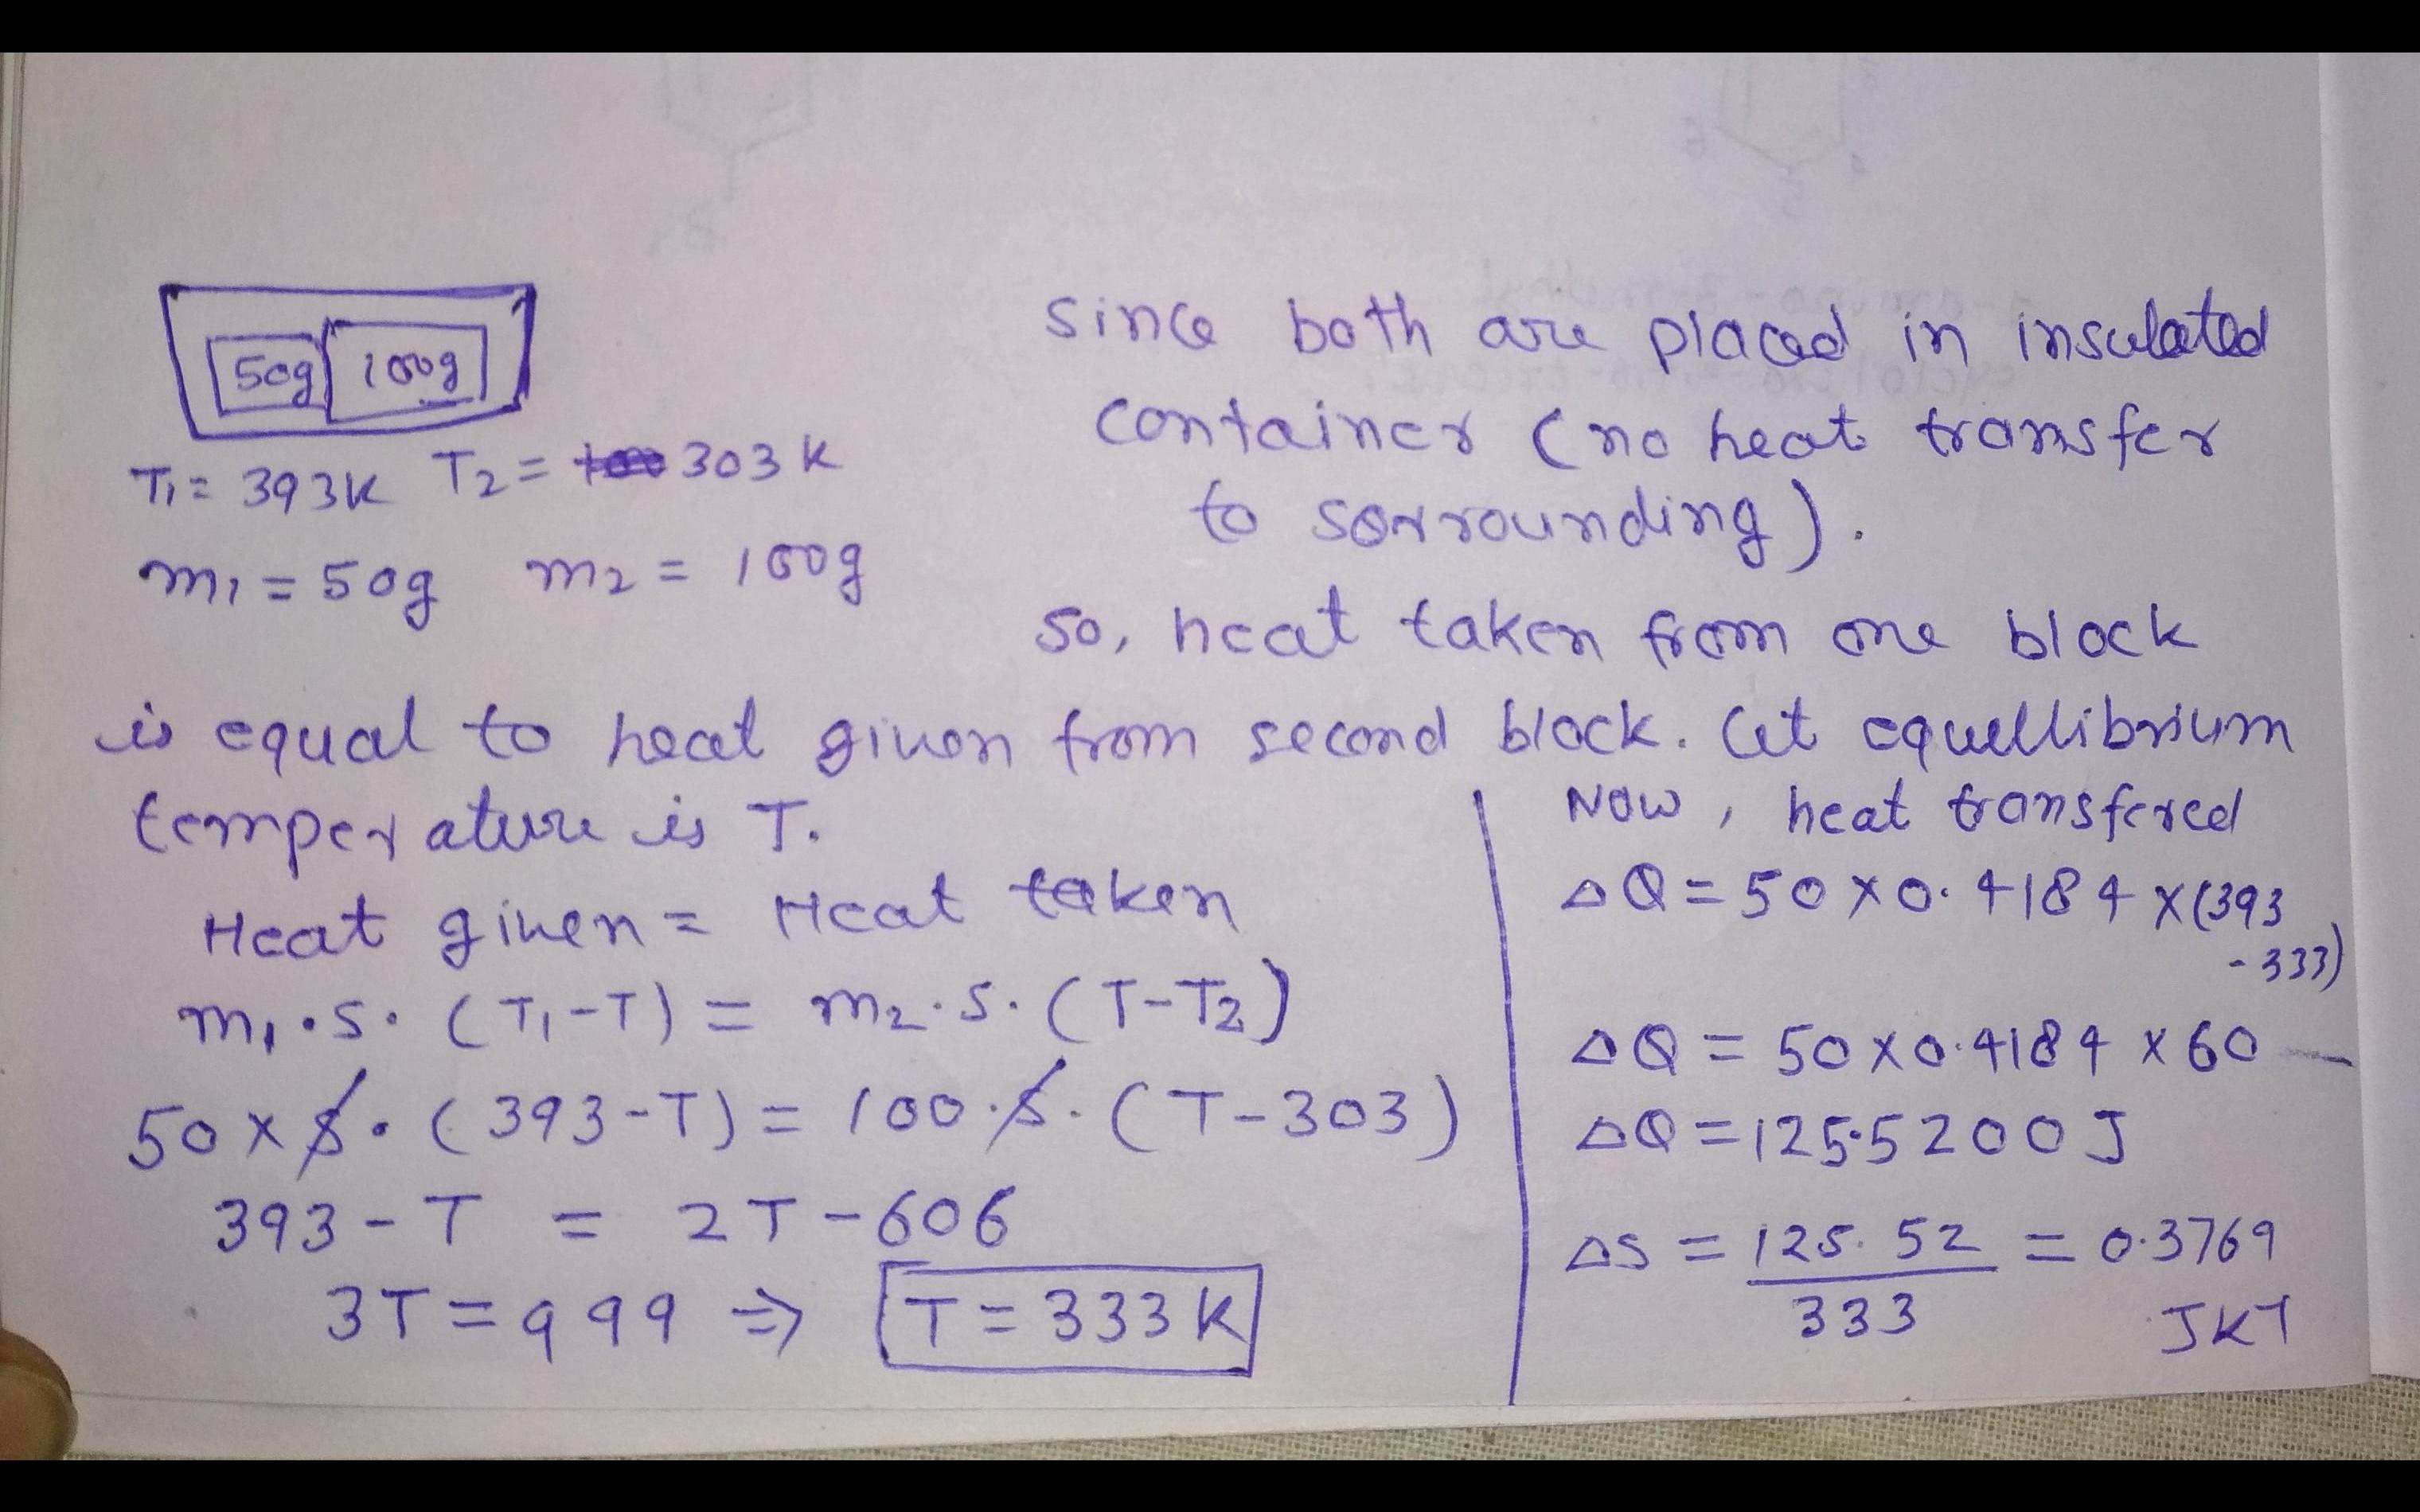 50g 100g
T1 = 393K T2 = 303K
m1 = 50g m2 = 100g
since both are placed in insulated
container (no heat transfer
to sorrounding).
so, heat taken from one block
is equal to heat given from second block. let equellibrium
temperature is T.
Heat given = Heat taken
m1.s.(T1-T) = m2.s.(T-T2)
50 x s.(393-T) = 100.s.(T-303)
393-T = 2T-606
3T = 999 => T = 333K
Now, heat transfered
ΔQ = 50 x 0.4184 x (393
-333)
ΔQ = 50 x 0.4184 x 60
ΔQ = 125.5200 J
ΔS = 125.52 = 0.3769
333 JK-1